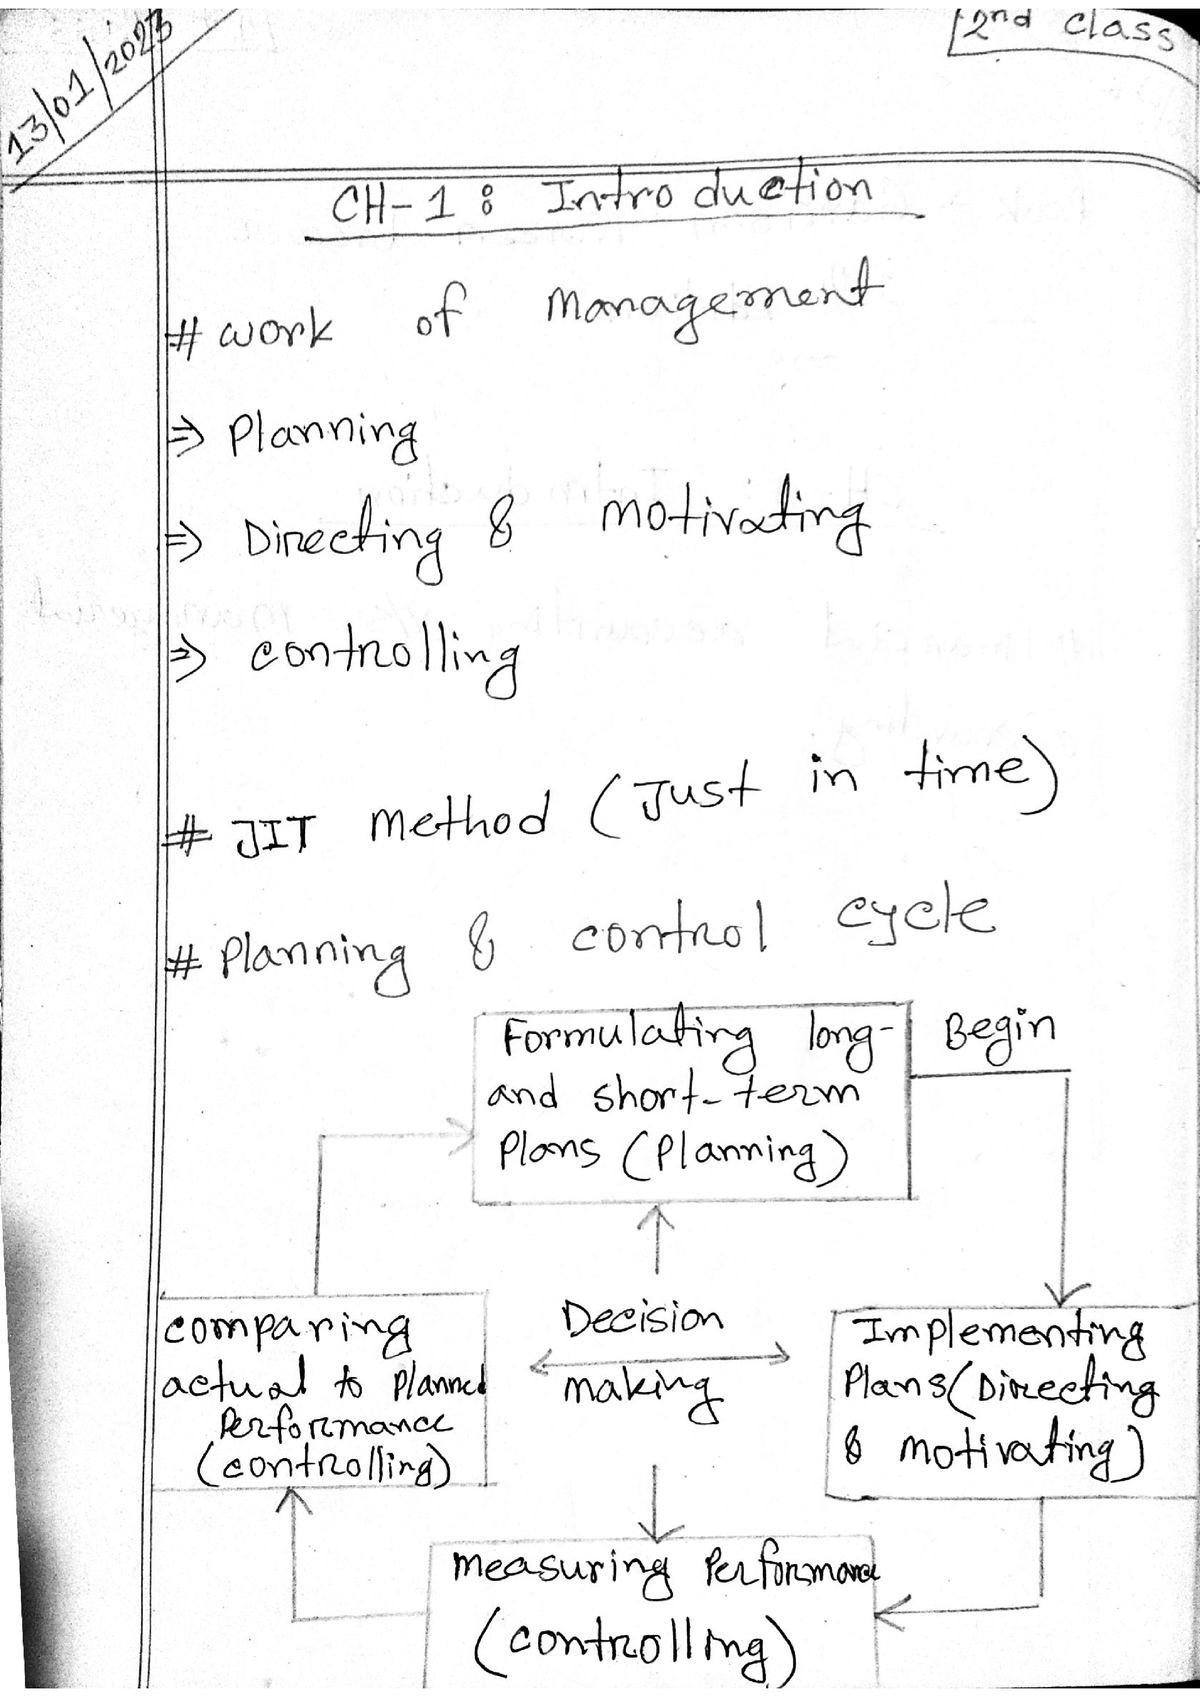 13/01/2023
2nd class
CH-1: Introduction
# work of management
⇒ Planning
⇒ Directing & motivating
⇒ controlling
# JIT method (Just in time)
# Planning & control cycle
Formulating long-
and short-term
Plans (Planning)
Begin
comparing
actual to Planned
Performance
(controlling)
Decision
making
Implementing
Plans (Directing
& motivating)
measuring Performance
(controlling)